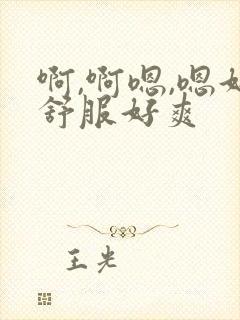 啊,啊嗯,嗯好
舒服好爽
王光